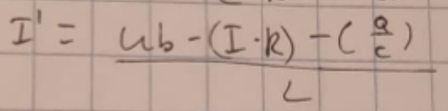 I' = (Ub - (I·R) - (Q/C)) / L